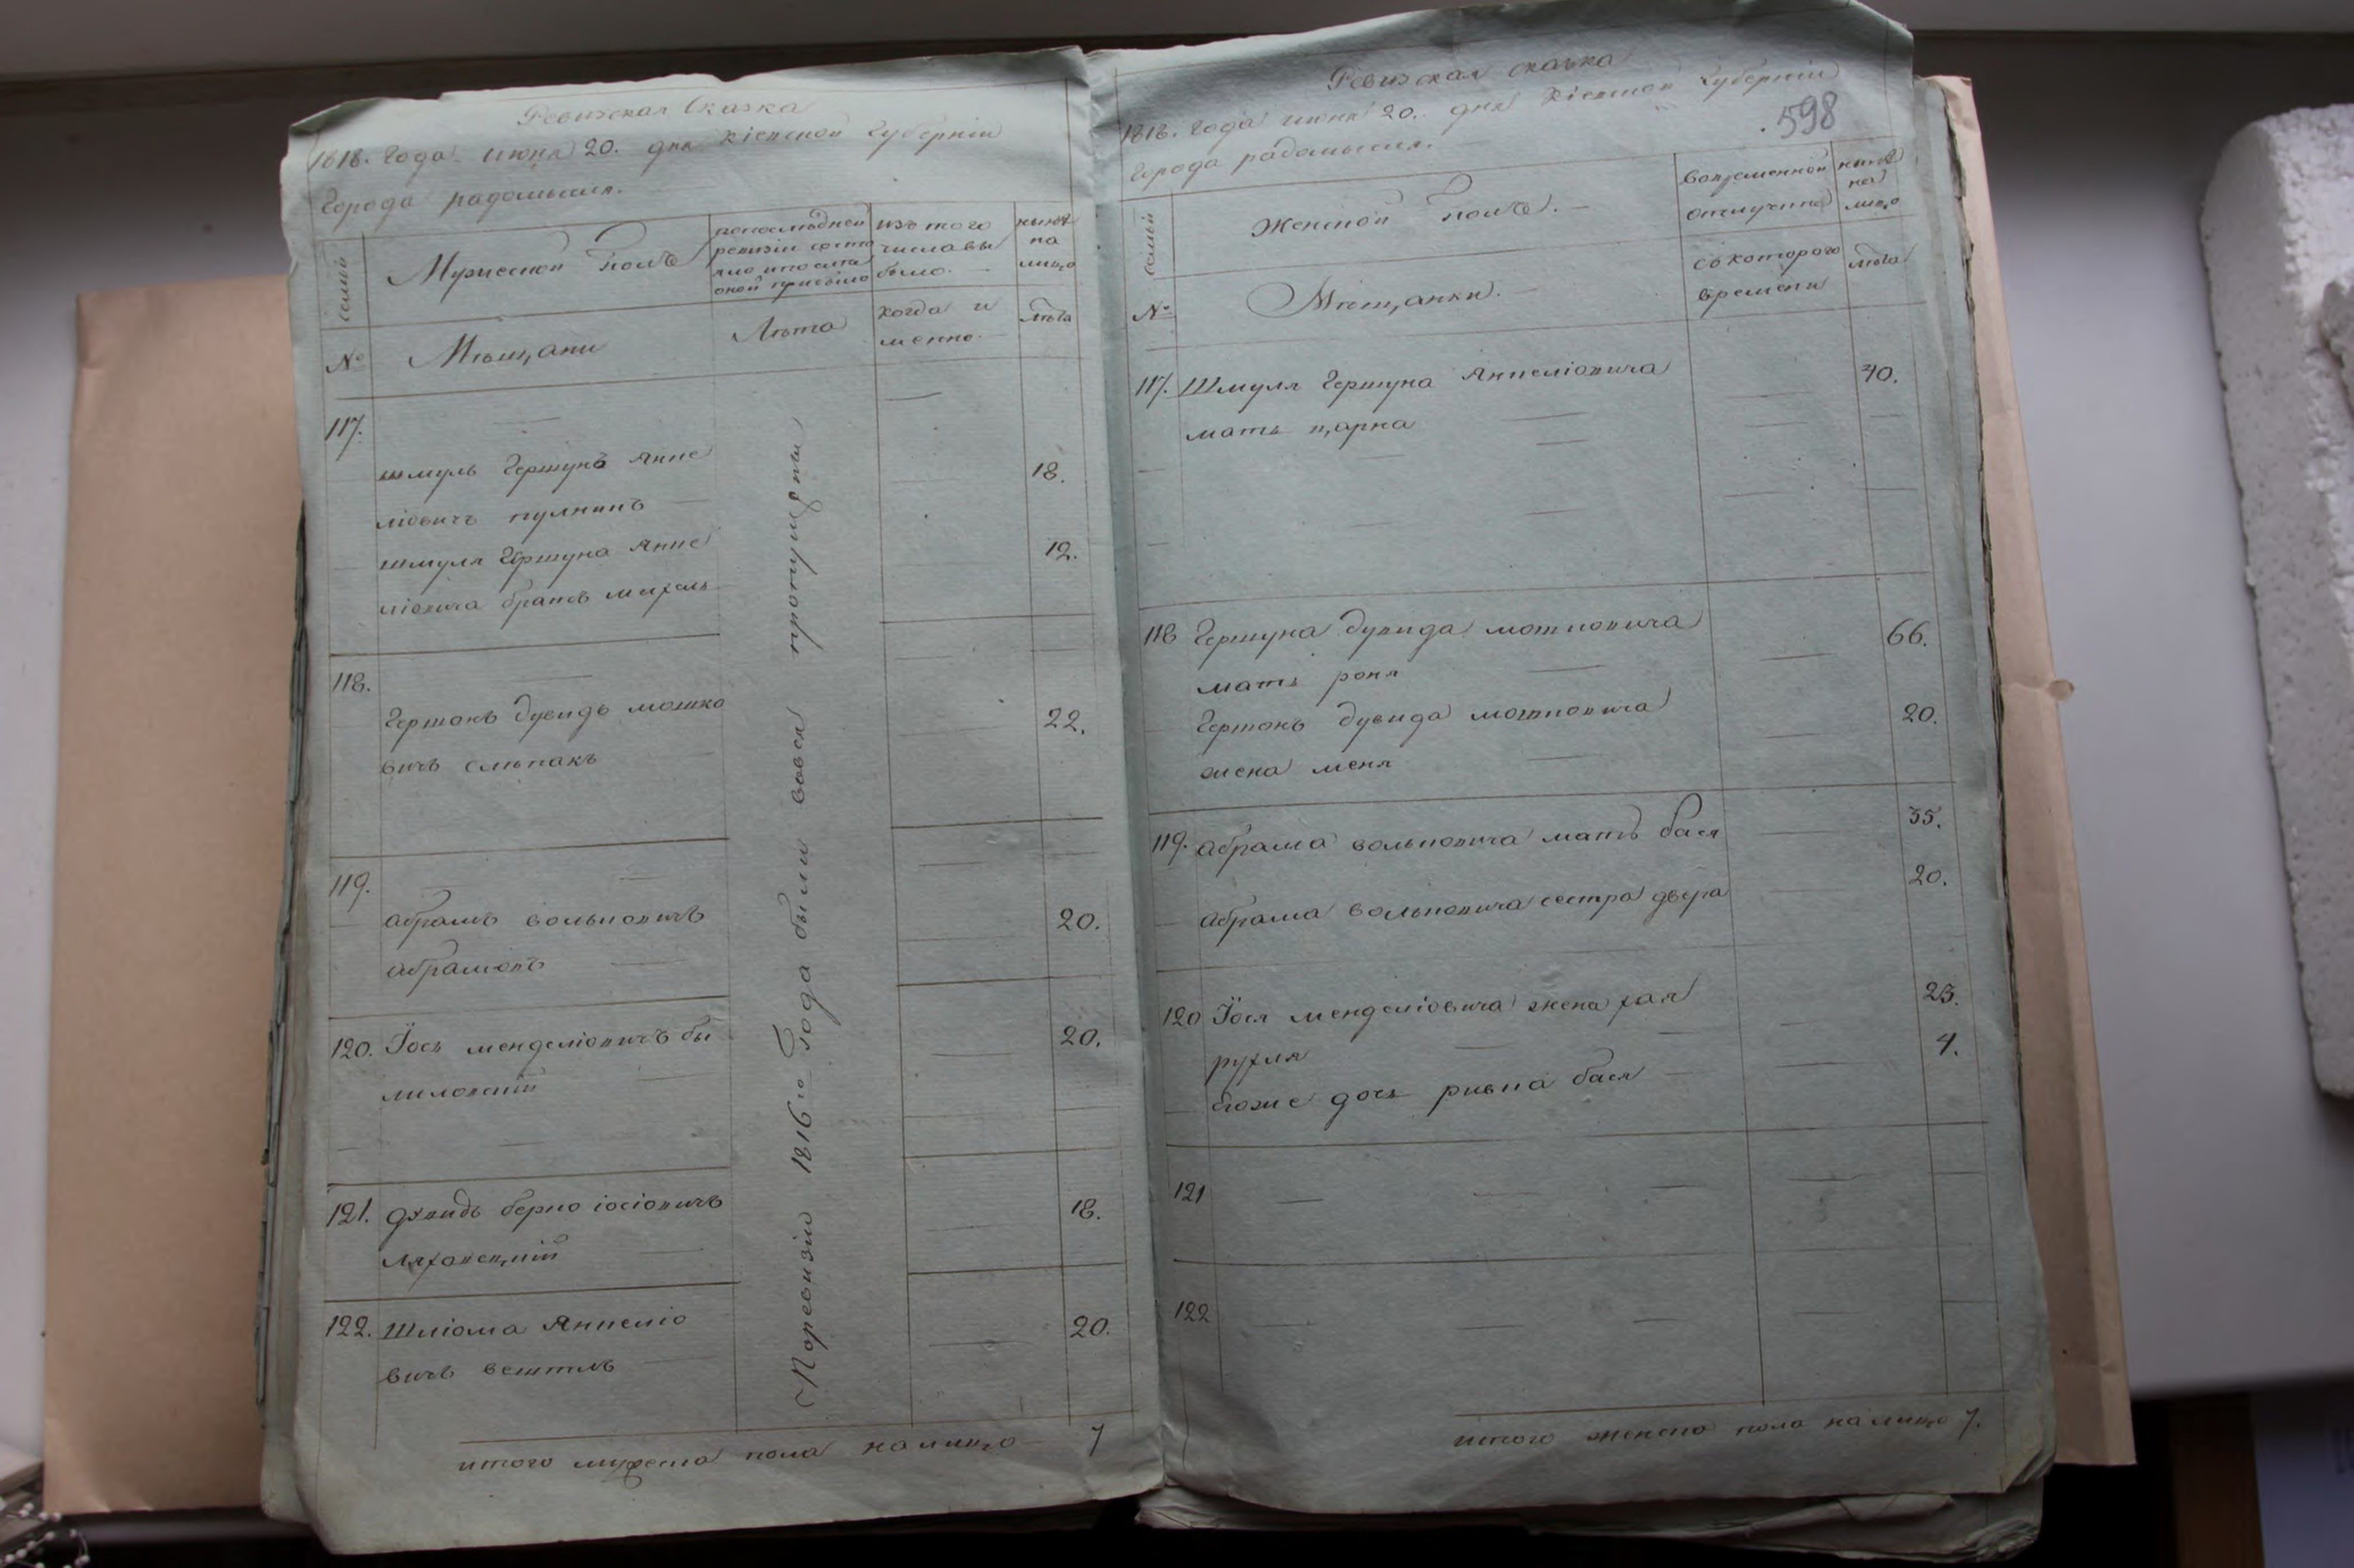 Ревизская Сказка
1818. Года июня 20. дня Киевской Губернии
Города радомысля.
семьи
Мужеской Полъ
по последней
ревизии состо
яло и после
оной прибыло
изъ того
числа вы
было.
ныне
на
лицо
№
Мѣщани
Лѣта
когда и
менно.
лѣта
117.
шмуль Гершунъ Анше
ліовичъ пулнинъ
18.
шмуля Гершуна Анше
ліовича братъ михель
12.
118.
Гершонъ дувидъ мошко
вичъ слѣпакъ
22.
119.
абрамъ вольковичъ
абрамовъ
20.
120. Їось менделіовичъ бы
миловскій
20.
121. дувидъ берко іосіовичъ
ляховецкій
18.
122. Шліома Аншеліо
вичъ вештль
20.
По ревизіи 1816го Года были вовся пропущены
итого мужеска пола налицо 7
Ревизская сказка
1818. Года июня 20. дня Кіевской Губерніи
598
Города радомысля.
семьи
Женской Полъ.
Во временной
отлучке
ныне
на
лицо
№
Мѣщанки.
съ котораго
времени
лѣта
117. Шмуля Гершуна Аншеліовича
40.
мать царка
118 Гершуна дувида мошковича
66.
мать роня
Гершонъ дувида мошковича
20.
жена меня
119. абрама вольковича мать бася
35.
абрама вольковича сестра двера
20.
120 Їося менделіовича жена хая
23.
рухля
Его же дочь ривка бася
4.
121
122
итого женска пола налицо 7.